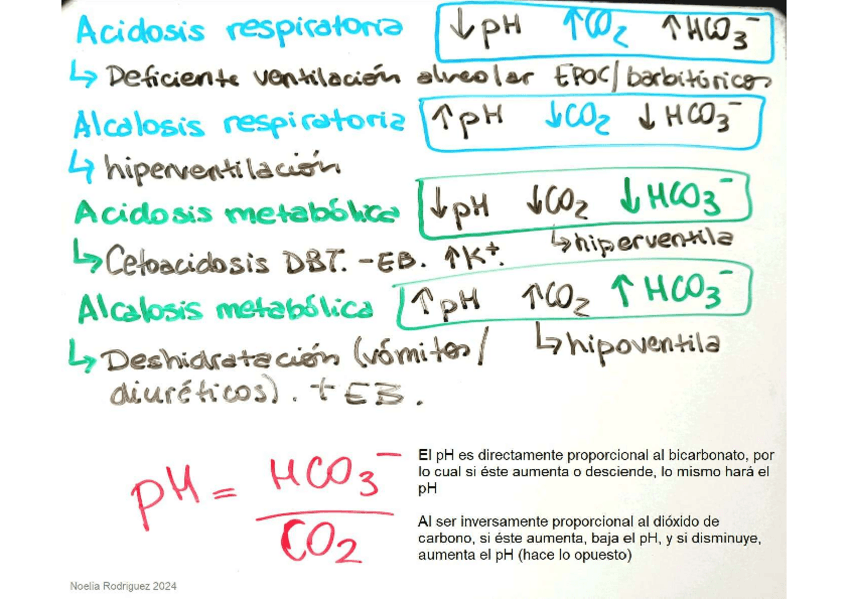 Acidosis respiratoria ↓pH ↑CO2 ↑HCO3⁻
↳ Deficiente ventilación alveolar EPOC/barbitúricos
Alcalosis respiratoria ↑pH ↓CO2 ↓HCO3⁻
↳ hiperventilación
Acidosis metabólica ↓pH ↓CO2 ↓HCO3⁻
↳ hiperventila
↳ Cetoacidosis DBT. -EB. ↑K+.
Alcalosis metabólica ↑pH ↑CO2 ↑HCO3⁻
↳ Deshidratación (vómitos/ ↳ hipoventila
diuréticos). + EB.
pH = HCO3⁻ / CO2
El pH es directamente proporcional al bicarbonato, por
lo cual si éste aumenta o desciende, lo mismo hará el
pH
Al ser inversamente proporcional al dióxido de
carbono, si éste aumenta, baja el pH, y si disminuye,
aumenta el pH (hace lo opuesto)
Noelia Rodriguez 2024